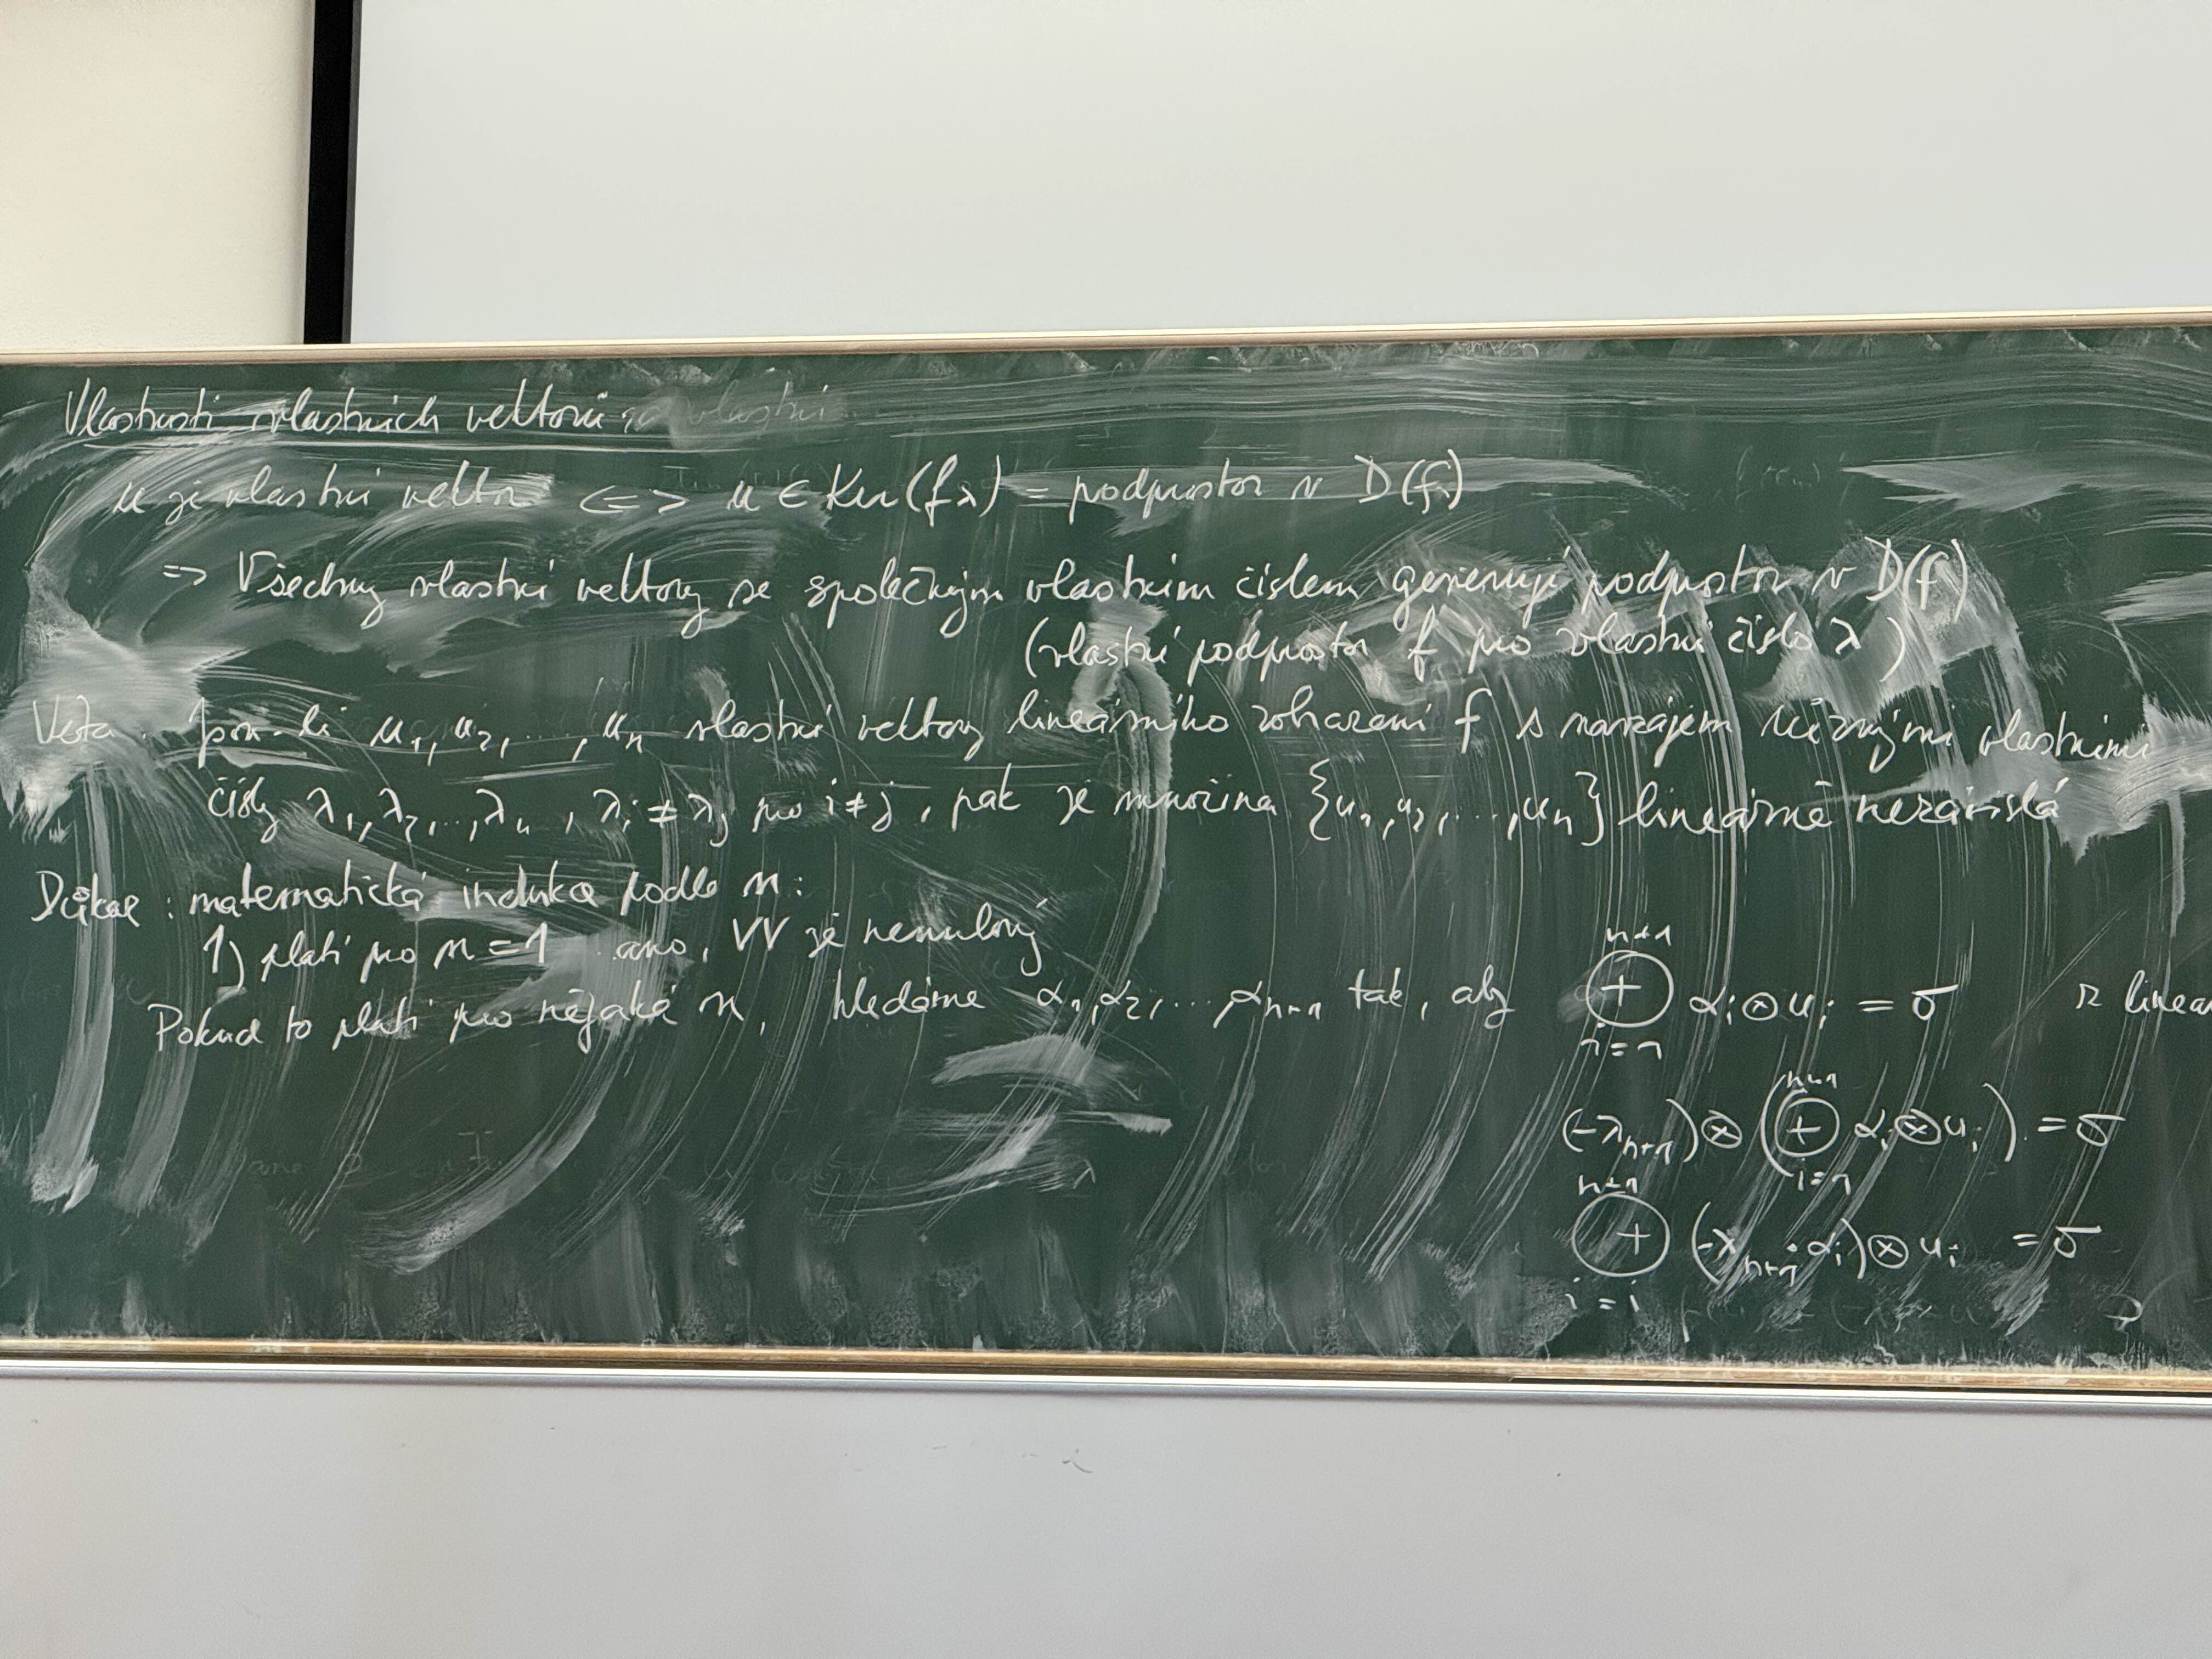 Vlastnosti vlastních vektorů:
u je vlastní vektor <=> u ∈ Ker(fλ) = podprostor v D(fλ)
=> Všechny vlastní vektory se společným vlastním číslem generují podprostor v D(f)
(vlastní podprostor f pro vlastní číslo λ)
Věta: jsou-li u₁, u₂, ..., uₙ vlastní vektory lineárního zobrazení f s navzájem různými vlastními
čísly λ₁, λ₂, .., λₙ, λᵢ ≠ λⱼ pro i≠j, pak je množina {u₁, u₂, ..., uₙ} lineárně nezávislá
Důkaz: matematická indukce podle n:
1) platí pro n=1 ano, VV je nenulový
Pokud to platí pro nějaké n, hledáme α₁, α₂, ... αₙ₊₁ tak, aby ⊕ᵢ₌₁ⁿ⁺¹ αᵢ⊗uᵢ = σ z linea
(-λₙ₊₁)⊗(⊕ᵢ₌₁ⁿ⁺¹ αᵢ⊗uᵢ) = σ
⊕ᵢ₌₁ⁿ⁺¹ (-λₙ₊₁·αᵢ)⊗uᵢ = σ